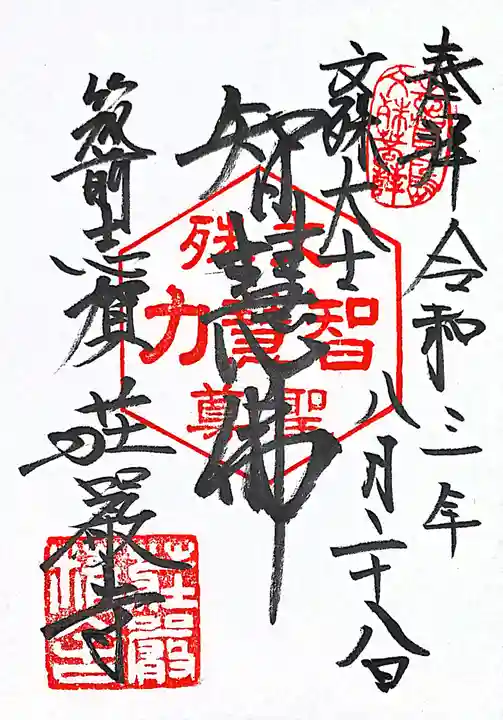 奉拝 令和三年
八月二十八日
文殊大士
智慧佛
筑前志賀 荘厳寺
文殊
智慧力
聖尊
荘厳